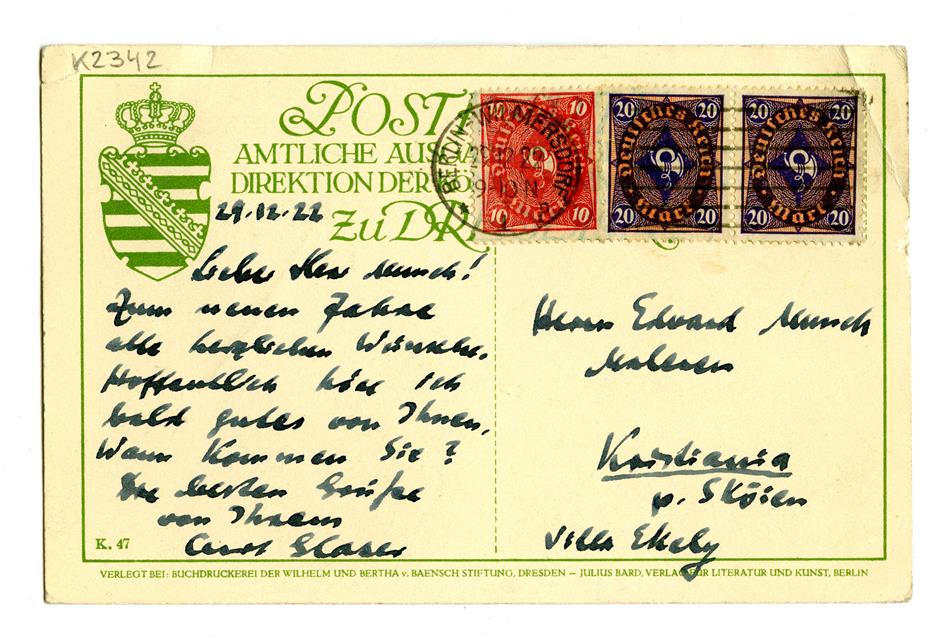 K2342
POST
AMTLICHE AUS
DIREKTION DER
ZU DR
10 10
Deutsches Reich
Mark
10 10
20 20
Deutsches Reich
Mark
20 20
20 20
Deutsches Reich
Mark
20 20
BERLIN-WILMERSDORF
29.12.22
Lieber Herr Munch!
Zum neuen Jahre
alle herzlichen Wünsche.
Hoffentlich höre ich
bald gutes von Ihnen.
Wann kommen Sie?
Die besten Grüße
von Ihrem
Curt Glaser
Herrn Edvard Munch
Maleren
Kristiania
p. Sköien
Villa Ekely
K. 47
VERLEGT BEI: BUCHDRUCKEREI DER WILHELM UND BERTHA v. BAENSCH STIFTUNG, DRESDEN – JULIUS BARD, VERLAG FÜR LITERATUR UND KUNST, BERLIN